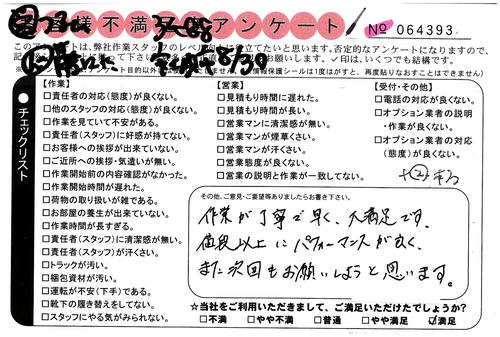 お客様不満足アンケート
No 064393
このアンケートは、弊社作業スタッフのレベル向上に役立てたいと思います。否定的なアンケートになりますので、
お願いします。✓印は、いくつでも結構です。
情報保護シールは1度はがすと、再度貼りなおすことはできません)
チェックリスト
【作業】
□責任者の対応(態度)が良くない。
□他のスタッフの対応(態度)が良くない。
□作業を見ていて不安がある。
□責任者(スタッフ)に好感が持てない。
□お客様への挨拶が出来ていない。
□ご近所への挨拶・気遣いが無い。
□作業開始前の内容確認がなかった。
□作業開始時間が遅れた。
□荷物の取り扱いが雑である。
□お部屋の養生が出来ていない。
□作業時間が長すぎる。
□責任者(スタッフ)に清潔感が無い。
□責任者(スタッフ)が汗くさい。
□トラックが汚い。
□梱包資材が汚い。
□運転が不安(下手)である。
□靴下の履き替えをしてない。
□スタッフにやる気がみられない。
【営業】
□見積もり時間に遅れた。
□見積もり時間が長い。
□営業マンに清潔感が無い。
□営業マンが煙草くさい。
□営業マンが汗くさい。
□営業態度が良くない。
□営業の説明と作業が一致してない。
【受付・その他】
□電話の対応が良くない。
□オプション業者の説明
・作業が良くない。
□オプション業者の対応
(態度)が良くない。
その他、ご意見・ご要望等ありましたらお書き下さい。
作業が丁寧で早く、大満足です。
値段以上にパフォーマンスが良く、
また次回もお願いしようと思います。
☆当社をご利用いただきまして、ご満足いただけたでしょうか?
□不満 □やや不満 □普通 □やや満足 ☑満足